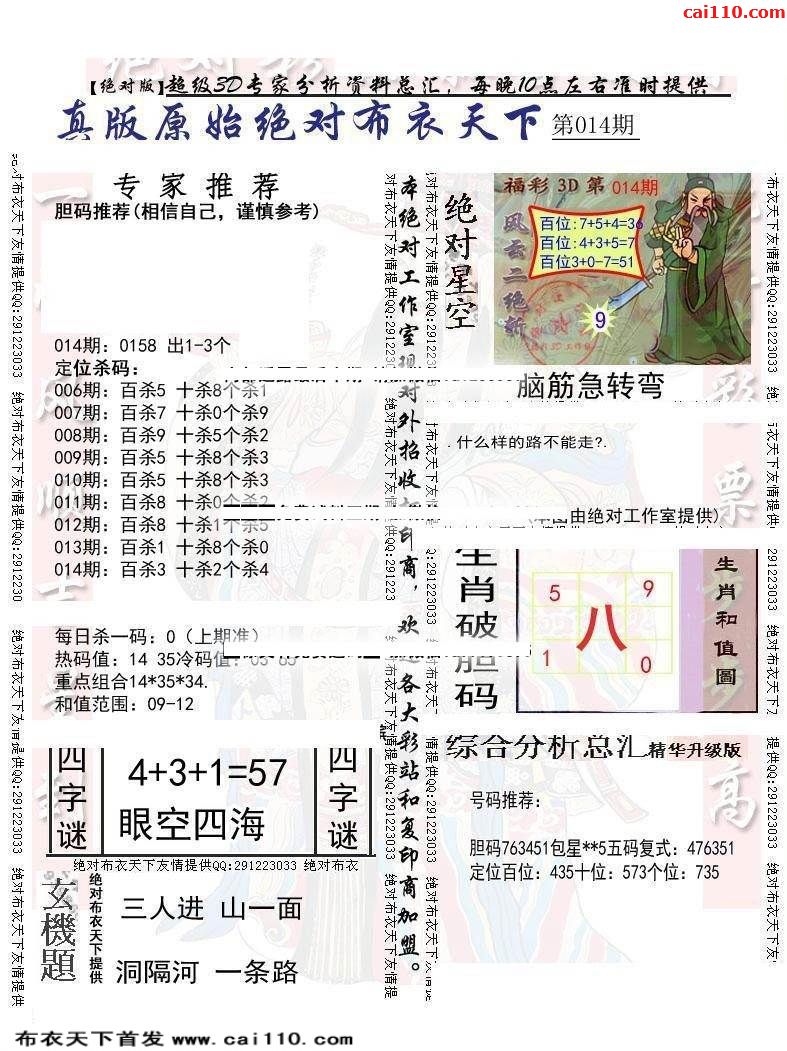 cai110.com
【绝对版】超级3D专家分析资料总汇，每晚10点左右准时提供
真版原始绝对布衣天下 第014期
专家推荐
胆码推荐(相信自己，谨慎参考)
014期：0158 出1-3个
定位杀码：
006期：百杀5 十杀8个杀1
007期：百杀7 十杀0个杀9
008期：百杀9 十杀5个杀2
009期：百杀5 十杀8个杀3
010期：百杀5 十杀8个杀3
011期：百杀8 十杀0个杀2
012期：百杀8 十杀1个杀5
013期：百杀1 十杀8个杀0
014期：百杀3 十杀2个杀4
每日杀一码：0（上期准）
热码值：14 35冷码值：03 65
重点组合14*35*34.
和值范围：09-12
四字谜
4+3+1=57
眼空四海
四字谜
绝对布衣天下友情提供QQ:291223033 绝对布衣
玄機題
绝对布衣天下提供
三人进 山一面
洞隔河 一条路
本绝对工作室现对外招收
印商，欢
各大彩站和复印商加盟。
绝对星空
福彩3D第014期
风云二绝新
百位:7+5+4=36
百位:4+3+5=7
百位3+0-7=51
9
脑筋急转弯
.什么样的路不能走?.
由绝对工作室提供)
生肖破胆码
5 9
八
1 0
生肖和值圖
综合分析总汇精华升级版
号码推荐：
胆码763451包星**5五码复式：476351
定位百位：435十位：573个位：735
对布衣天下友情提供QQ:291223033 绝对布衣天下友情提供QQ:291223033
布衣天下首发 www.cai110.com